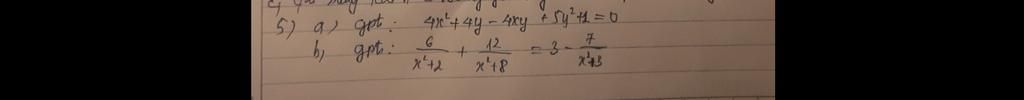 5) a) gpt: 4x²+4y-4xy+5y²+1=0
b, gpt: 6/(x²+2) + 12/(x²+8) = 3 - 7/(x²+3)